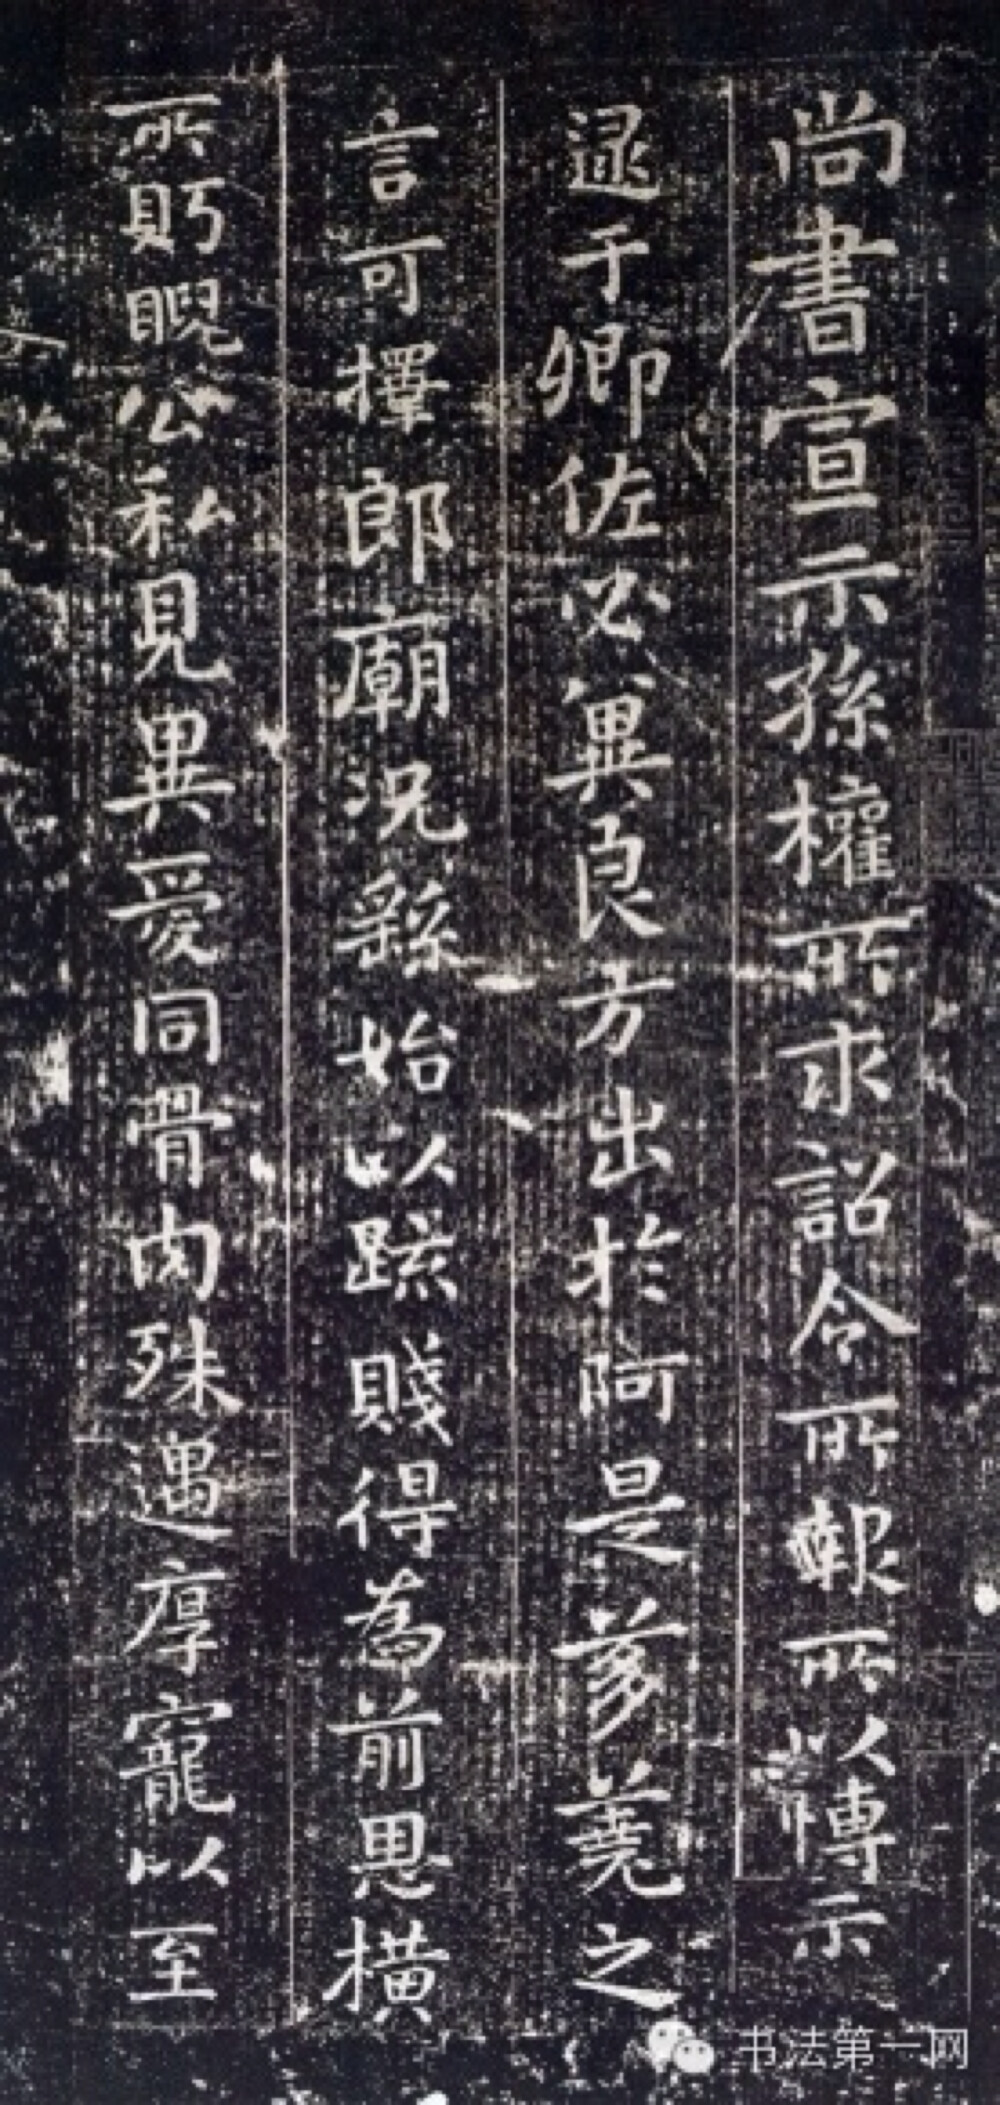 尚書宣示孫權所求詔令所報所以博示
逮于卿佐必冀良方出於阿是芻蕘之
言可擇郎廟況繇始以疏賤得為前恩橫
所眄睨公私見異愛同骨肉殊遇厚寵以至
书法第一网